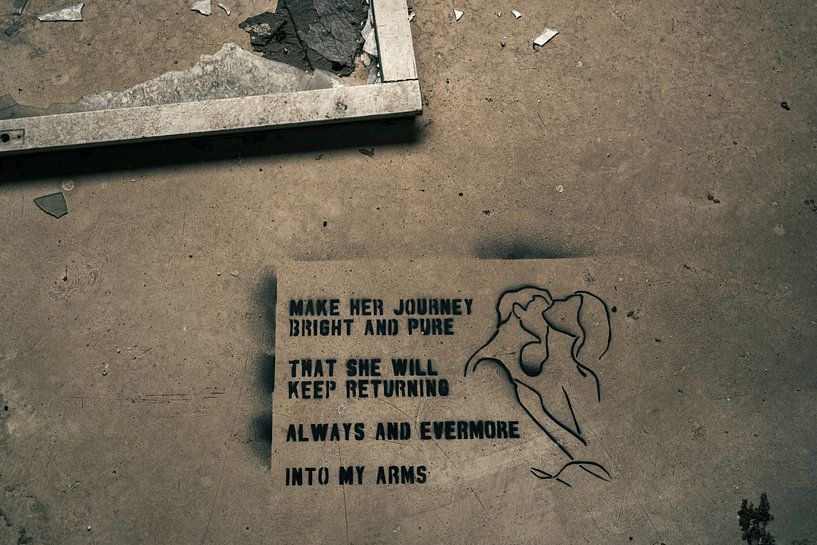 MAKE HER JOURNEY
BRIGHT AND PURE
THAT SHE WILL
KEEP RETURNING
ALWAYS AND EVERMORE
INTO MY ARMS